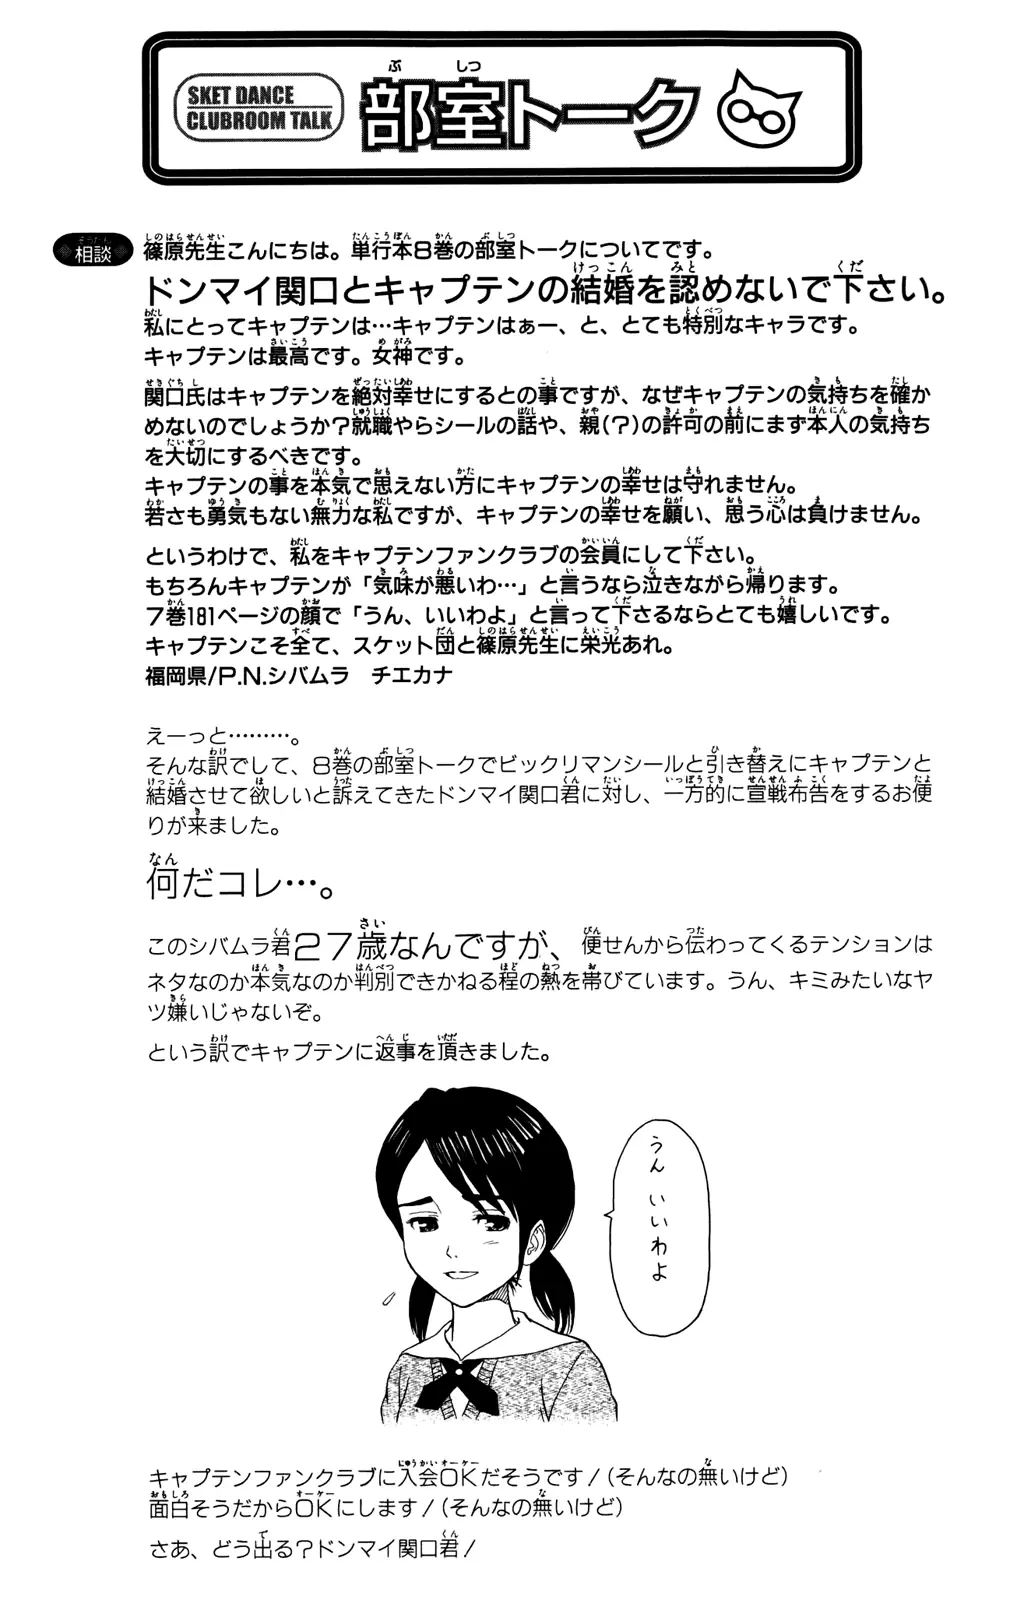 SKET DANCE
CLUBROOM TALK
部室トーク
相談
篠原先生こんにちは。単行本8巻の部室トークについてです。
ドンマイ関口とキャプテンの結婚を認めないで下さい。
私にとってキャプテンは…キャプテンはぁー、と、とても特別なキャラです。
キャプテンは最高です。女神です。
関口氏はキャプテンを絶対幸せにするとの事ですが、なぜキャプテンの気持ちを確か
めないのでしょうか？就職やらシールの話や、親(？)の許可の前にまず本人の気持ち
を大切にするべきです。
キャプテンの事を本気で思えない方にキャプテンの幸せは守れません。
若さも勇気もない無力な私ですが、キャプテンの幸せを願い、思う心は負けません。
というわけで、私をキャプテンファンクラブの会員にして下さい。
もちろんキャプテンが「気味が悪いわ…」と言うなら泣きながら帰ります。
7巻181ページの顔で「うん、いいわよ」と言って下さるならとても嬉しいです。
キャプテンこそ全て、スケット団と篠原先生に栄光あれ。
福岡県/P.N.シバムラ　チエカナ
えーっと………。
そんな訳でして、8巻の部室トークでビックリマンシールと引き替えにキャプテンと
結婚させて欲しいと訴えてきたドンマイ関口君に対し、一方的に宣戦布告をするお便
りが来ました。
何だコレ…。
このシバムラ君27歳なんですが、便せんから伝わってくるテンションは
ネタなのか本気なのか判別できかねる程の熱を帯びています。うん、キミみたいなヤ
ツ嫌いじゃないぞ。
という訳でキャプテンに返事を頂きました。
うん いいわよ
キャプテンファンクラブに入会OKだそうです！(そんなの無いけど)
面白そうだからOKにします！(そんなの無いけど)
さあ、どう出る？ドンマイ関口君！